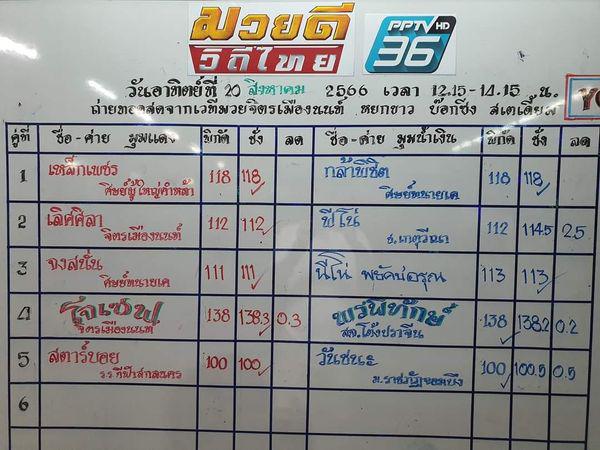 มวยดี
วิถีไทย
PPTV HD
36
วันอาทิตย์ที่ 20 สิงหาคม 2566 เวลา 12.15-14.15 น.
ถ่ายทอดสดจากเวทีมวยจิตรเมืองนนท์ หยกขาว บ๊อกซิ่ง สเตเดี้ยม
คู่ที่ ชื่อ-ค่าย มุมแดง พิกัด ชั่ง ลด ชื่อ-ค่าย มุมน้ำเงิน พิกัด ชั่ง ลด
1 เหล็กเพชร 118 118 กล้าพิชิต 118 118
ศิษย์ผู้ใหญ่คำหล้า ศิษย์ทนายเด
2 เลิศศิลา 112 112 ฟีโน่ 112 114.5 2.5
จิตรเมืองนนท์
3 จงสนั่น 111 111 นีโน่ พยัคฆ์อรุณ 113 113
ศิษย์ทนายเด
4 โจเซฟ 138 138.3 0.3 พรพิทักษ์ 138 138.2 0.2
จิตรเมืองนนท์ สจ.โต้งปราจีน
5 สตาร์บอย 100 100 วันชนะ 100 100.5 0.5
ร.ร.กีฬาสกลนคร
6